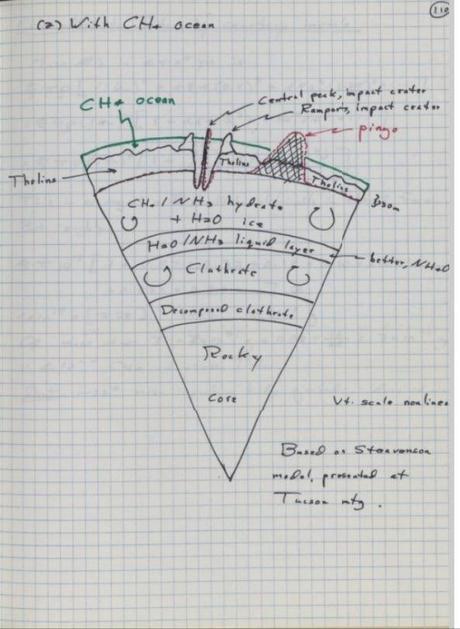 110
(2) With CH4 ocean
Central peak, impact crater
Ramparts, impact crater
CH4 ocean
pingo
Tholins
Tholins
Tholins
CH4/NH3 hydrate
+ H2O ice
H2O/NH3 liquid layer
better, NH4O
Clathrate
Decomposed clathrate
Rocky
Core
Vt. scale nonlinea
Based on Stevenson
model, presented at
Tucson mtg.